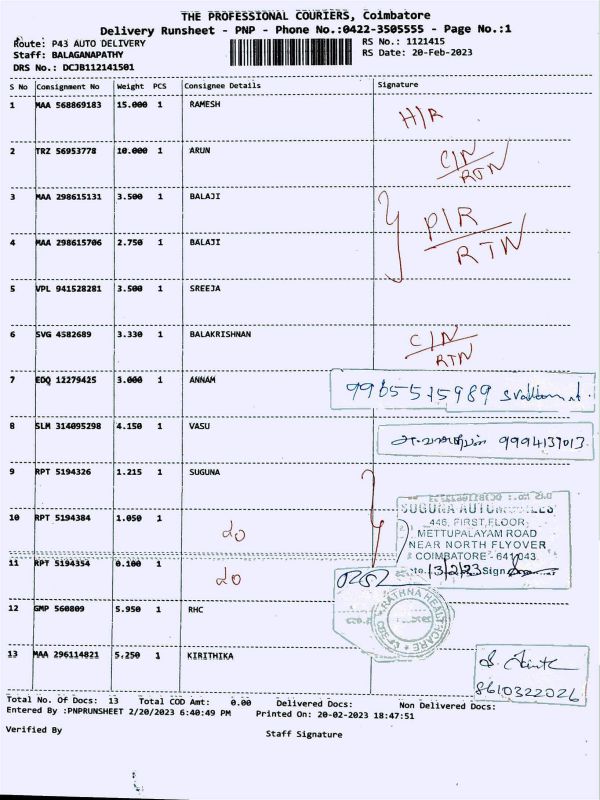 THE PROFESSIONAL COURIERS, Coimbatore
Delivery Runsheet - PNP - Phone No.:0422-3505555 - Page No.:1
Route: P43 AUTO DELIVERY RS No.: 1121415
Staff: BALAGANAPATHY RS Date: 20-Feb-2023
DRS No.: DCJB112141501
S No Consignment No Weight PCS Consignee Details Signature
1 MAA 568869183 15.000 1 RAMESH H/R
2 TRZ 56953778 10.000 1 ARUN C/N
RTN
3 MAA 298615131 3.500 1 BALAJI P/R
4 MAA 298615706 2.750 1 BALAJI RTN
5 VPL 941528281 3.500 1 SREEJA
6 SVG 4582689 3.330 1 BALAKRISHNAN C/N
RTN
7 EDQ 12279425 3.000 1 ANNAM 9965515989
8 SLM 314095298 4.150 1 VASU 9994139013
9 RPT 5194326 1.215 1 SUGUNA
SUGUNA AUTOMOBILES
10 RPT 5194384 1.050 1 do
446, FIRST FLOOR
METTUPALAYAM ROAD
NEAR NORTH FLYOVER
COIMBATORE - 641043.
11 RPT 5194354 0.100 1 do
13/2/23 Sign
12 GMP 560809 5.950 1 RHC
RATHNA HEALTHCARE
13 MAA 296114821 5.250 1 KIRITHIKA
8610322026
Total No. Of Docs: 13 Total COD Amt: 0.00 Delivered Docs: Non Delivered Docs:
Entered By :PNPRUNSHEET 2/20/2023 6:40:49 PM Printed On: 20-02-2023 18:47:51
Verified By Staff Signature